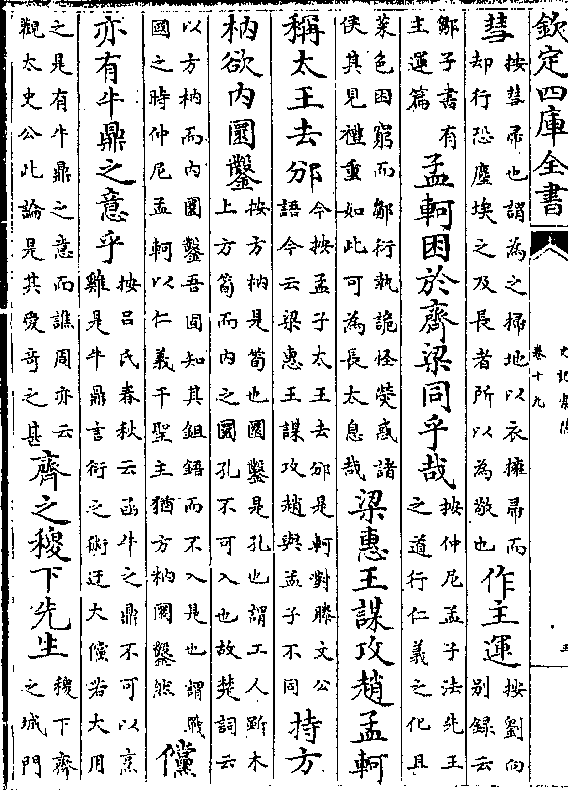 欽定四庫全書
史記索隱
卷十九
五
彗
按彗帚也謂為之掃地以衣擁帚而
却行恐塵埃之及長者所以為敬也
作主運
按劉向
别録云
鄒子書有
主運篇
孟軻困於齊梁同乎哉
按仲尼孟子法先王
之道行仁義之化且
菜色困窮而鄒衍執詭怪熒惑諸
侯其見禮重如此可為長太息哉
梁惠王謀攻趙孟軻
稱太王去邠
今按孟子太王去邠是軻對滕文公
語今云梁惠王謀攻趙與孟子不同
持方
枘欲内圜鑿
按方枘是筍也圜鑿是孔也謂工人斵木
上方筍而内之圜孔不可入也故楚詞云
以方枘而内圜鑿吾固知其鉏鋙而不入是也謂戰
國之時仲尼孟軻以仁義干聖主猶方枘圜鑿然
儻
亦有牛鼎之意乎
按吕氏春秋云函牛之鼎不可以烹
雞是牛鼎言衍之術迂大儻若大用
之是有牛鼎之意而譙周亦云
觀太史公此論是其愛奇之甚
齊之稷下先生
稷下齊
之城門